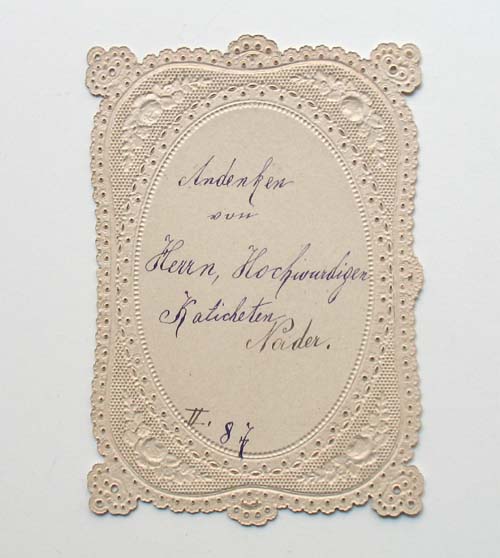 Andenken
von
Herrn, Hochwurdigen
Katicheten
Nader.
II. 87